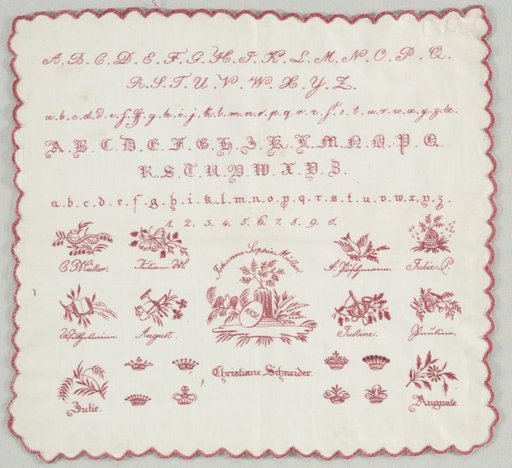 A. B. C. D. E. F. G. H. I. K. L. M. N. O. P. Q.
R. S. T. U. V. W. X. Y. Z.
A. B. C. D. E. F. G. H. I. K. L. M. N. O. P. Q.
R. S. T. U. V. W. X. Y. Z.
a. b. c. d. e. f. g. h. i. k. l. m. n. o. p. q. r. s. t. u. v. w. x. y. z.
1. 2. 3. 4. 5. 6. 7. 8. 9. 0.
Johanna Sophia Müller.
Julie P.
August.
Justine.
Christiane Schneider.
Julie.
Auguste.